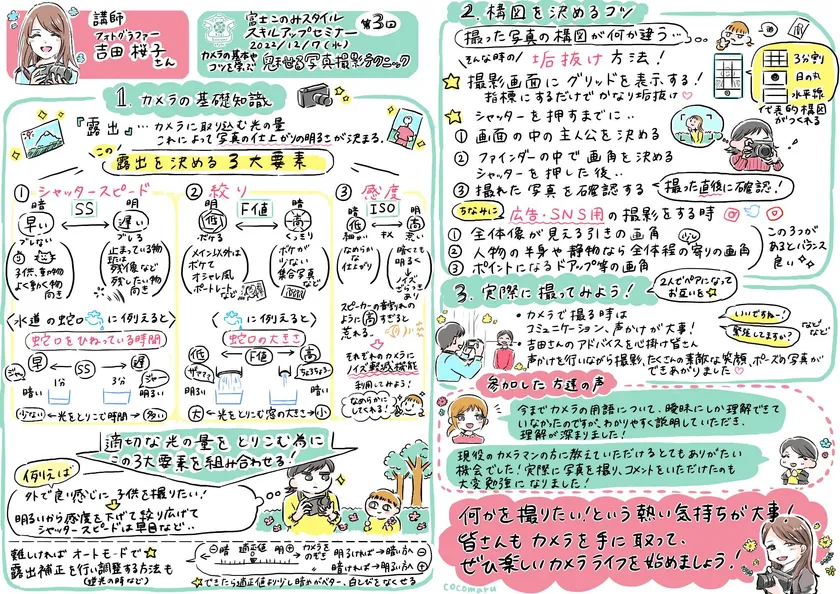 講師
フォトグラファー
吉田 桜子さん
富士このみスタイル
スキルアップセミナー
第3回
2022/12/7(水)
カメラの基本やコツを学ぶ
魅せる写真撮影テクニック
1. カメラの基礎知識
『露出』…カメラに取り込む光の量
これによって写真の仕上がりの明るさが決まる。
この
露出を決める3大要素
① シャッタースピード
暗 明
早い SS 遅い
ブレない ブレる
子供、動物
よく動く物
向き
止まっている物
又は
残像など
残したい物
向き
② 絞り
明 暗
低 F値 高
ボケる くっきり
メイン以外は
ボケて
オシャレ風
ポートレートなど
ボケが
少ない
集合写真
など
③ 感度
暗 明
低 ISO 高
細かい 荒い
なめらかな
仕上がり
暗くても
明るく
ノイズ
ざらっき
あり
スピーカーの音割れの
ように高すぎると
荒れる。
それぞれのカメラに
ノイズ軽減機能
利用してみよう!
なめらかに
してくれる!
〈水道の蛇口に例えると〉
蛇口をひねっている時間
早 SS 遅
ジャー 1分 3分 ジャー
暗い 明るい
少ない ←光をとりこむ時間→ 多い
〈に例えると〉
蛇口の大きさ
低 F値 高
ちょろちょろ
明るい 暗い
大 ←光をとりこむ窓の大きさ→ 小
適切な光の量をとりこむ為に
この3大要素を組み合わせる!
例えば
外で良い感じに子供を撮りたい!
明るいから感度を下げて絞り広げて
シャッタースピードは早目など‥
難しければオートモードで
露出補正を行い調整する方法も
(逆光の時など)
暗 適正値 明
カメラをのぞき
明るければ→暗い方へ
暗ければ→明るい方へ
できたら適正値より少し暗めがベター、白とびをなくせる
2. 構図を決めるコツ
撮った写真の構図が何か違う‥
そんな時の! 垢抜け方法!
撮影画面にグリッドを表示する!
指標にするだけでかなり垢抜け
3分割
日の丸
水平線
代表的構図
がつくれる
シャッターを押すまでに‥
① 画面の中の主人公を決める
② ファインダーの中で画角を決める
シャッターを押した後‥
③ 撮れた写真を確認する
撮った直後に確認!
ちなみに
広告・SNS用の撮影をする時
① 全体像が見える引きの画角
② 人物の半身や静物なら全体程の寄りの画角
③ ポイントになるドアップ等の画角
この3つが
あるとバランス
良い
3. 実際に撮ってみよう!
2人でペアになって
お互いを
・カメラで撮る時は
コミュニケーション、声かけが大事!
いいですねー!
緊張してますか?
などなど
・吉田さんのアドバイスを心掛け皆さん
声かけを行いながら撮影、たくさんの素敵な笑顔、ポーズの写真が
できあがりました
参加した方達の声
今までカメラの用語について、曖昧にしか理解できて
いなかったのですが、わかりやすく説明していただき、
理解が深まりました!
現役のカメラマンの方に教えていただけるとてもありがたい
機会でした!実際に写真を撮り、コメントをいただけたのも
大変勉強になりました!
何かを撮りたい!という熱い気持ちが大事!
皆さんもカメラを手に取って、
ぜひ楽しいカメラライフを始めましょう!
cocomaru